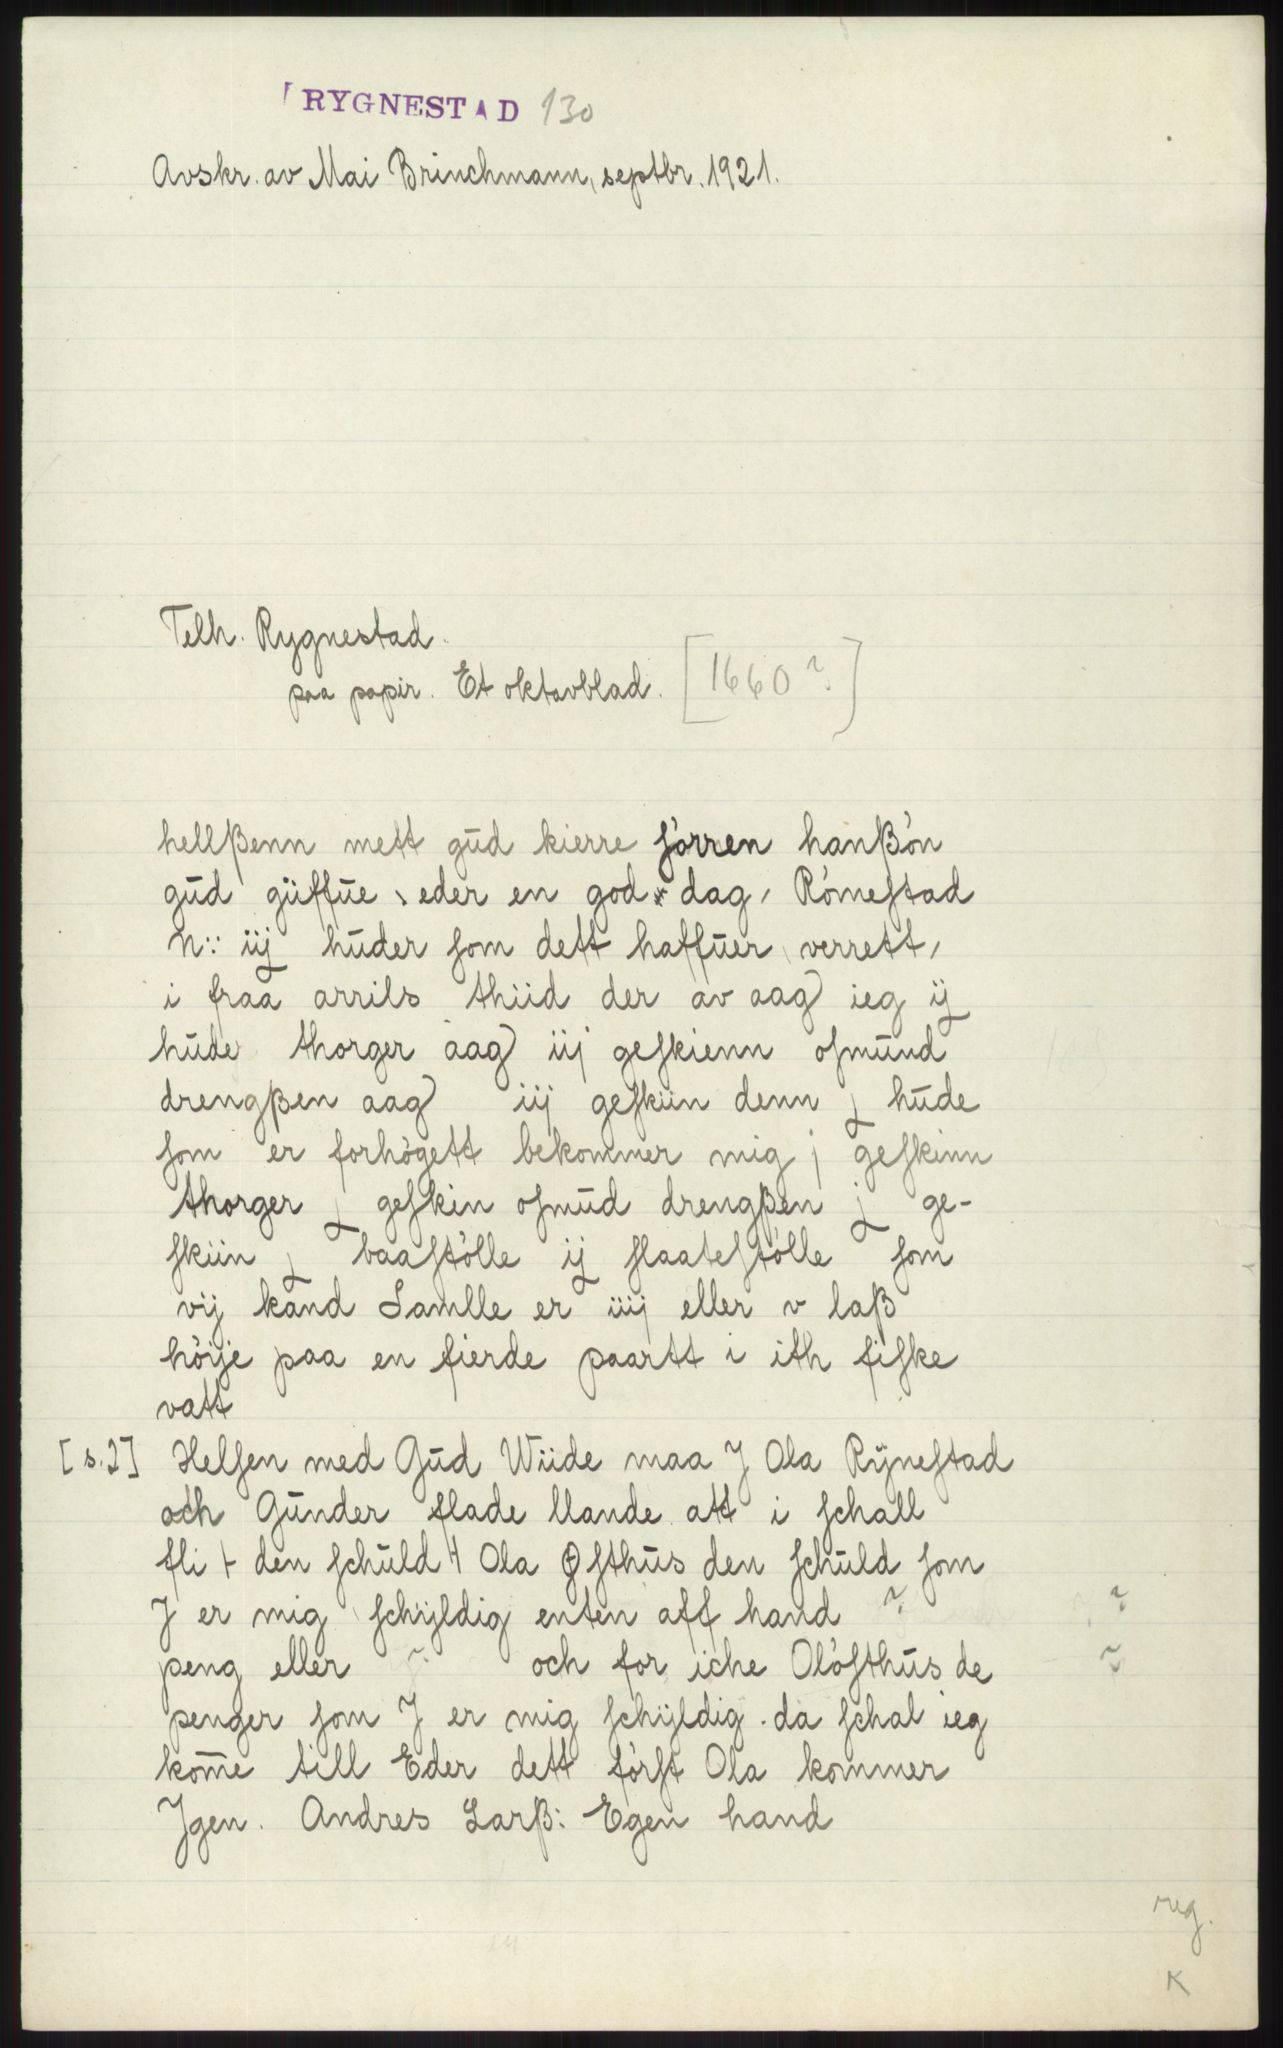 RYGNESTAD 130
Avskr. av Mai Brinchmann, septbr. 1921.
Telh. Rygnestad.
paa papir. Et oktavblad. [1660?]
hellßenn mett gud kierre sörren hanßön
gud giiffue, eder en god * dag, Römestad
N:: iij huder som dett haffuer verrett,
i fraa arrils thiid der av aag ieg ij
hude thorger aag iij geskienn osmund
drengßen aag iij geskiin denn j hude
som er forhögett bekommer mig j geskinn
thorger j geskin osmud drengßen j ge-
skiin j baastölle ij slaatestölle som
vij kand Samlle er iiij eller v laß
höije paa en fierde paartt i ith fiske
vatt
[s.2] Helsen med Gud Wiide maa J Ola Rÿnestad
och Gunder flade llande att i schall
fli + den schuld + Ola Østhus den schuld som
J er mig schÿldig enten aff hand ? ?
peng eller ? och for iche Olösthus de ?
penger som J er mig schÿldig. da schal ieg
kom̅e till Eder dett först Ola kommer
Jgen. Andres Larß: Egen hand
reg.
K